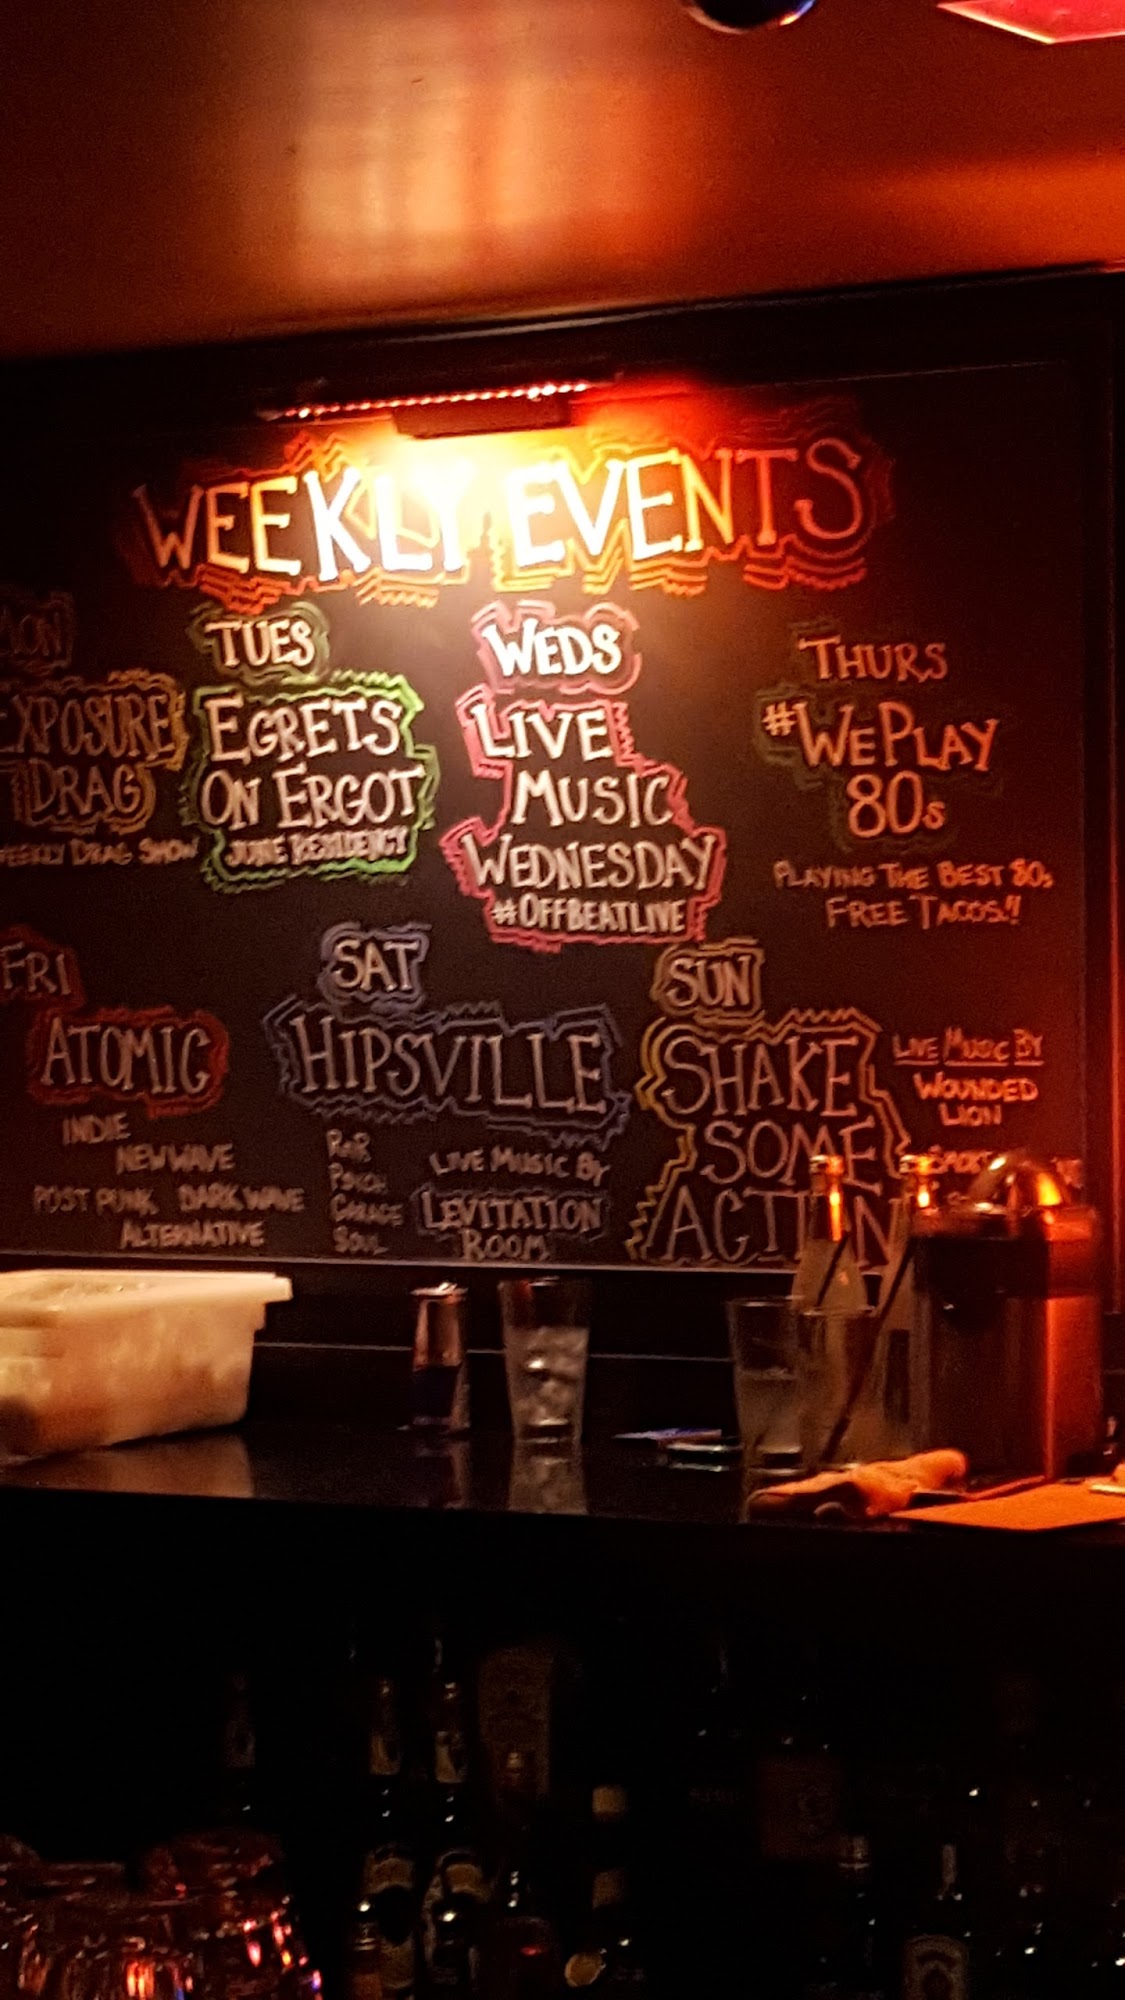 WEEKLY EVENTS
MON
EXPOSURE
DRAG
WEEKLY DRAG SHOW
TUES
EGRETS
ON ERGOT
JUNE RESIDENCY
WEDS
LIVE
MUSIC
WEDNESDAY
#OFFBEATLIVE
THURS
#WEPLAY
80s
PLAYING THE BEST 80s
FREE TACOS!!
FRI
ATOMIC
INDIE
NEW WAVE
POST PUNK DARK WAVE
ALTERNATIVE
SAT
HIPSVILLE
RnR
PSYCH
GARAGE
SOUL
LIVE MUSIC BY
LEVITATION
ROOM
SUN
SHAKE
SOME
ACTION
LIVE MUSIC BY
WOUNDED
LION